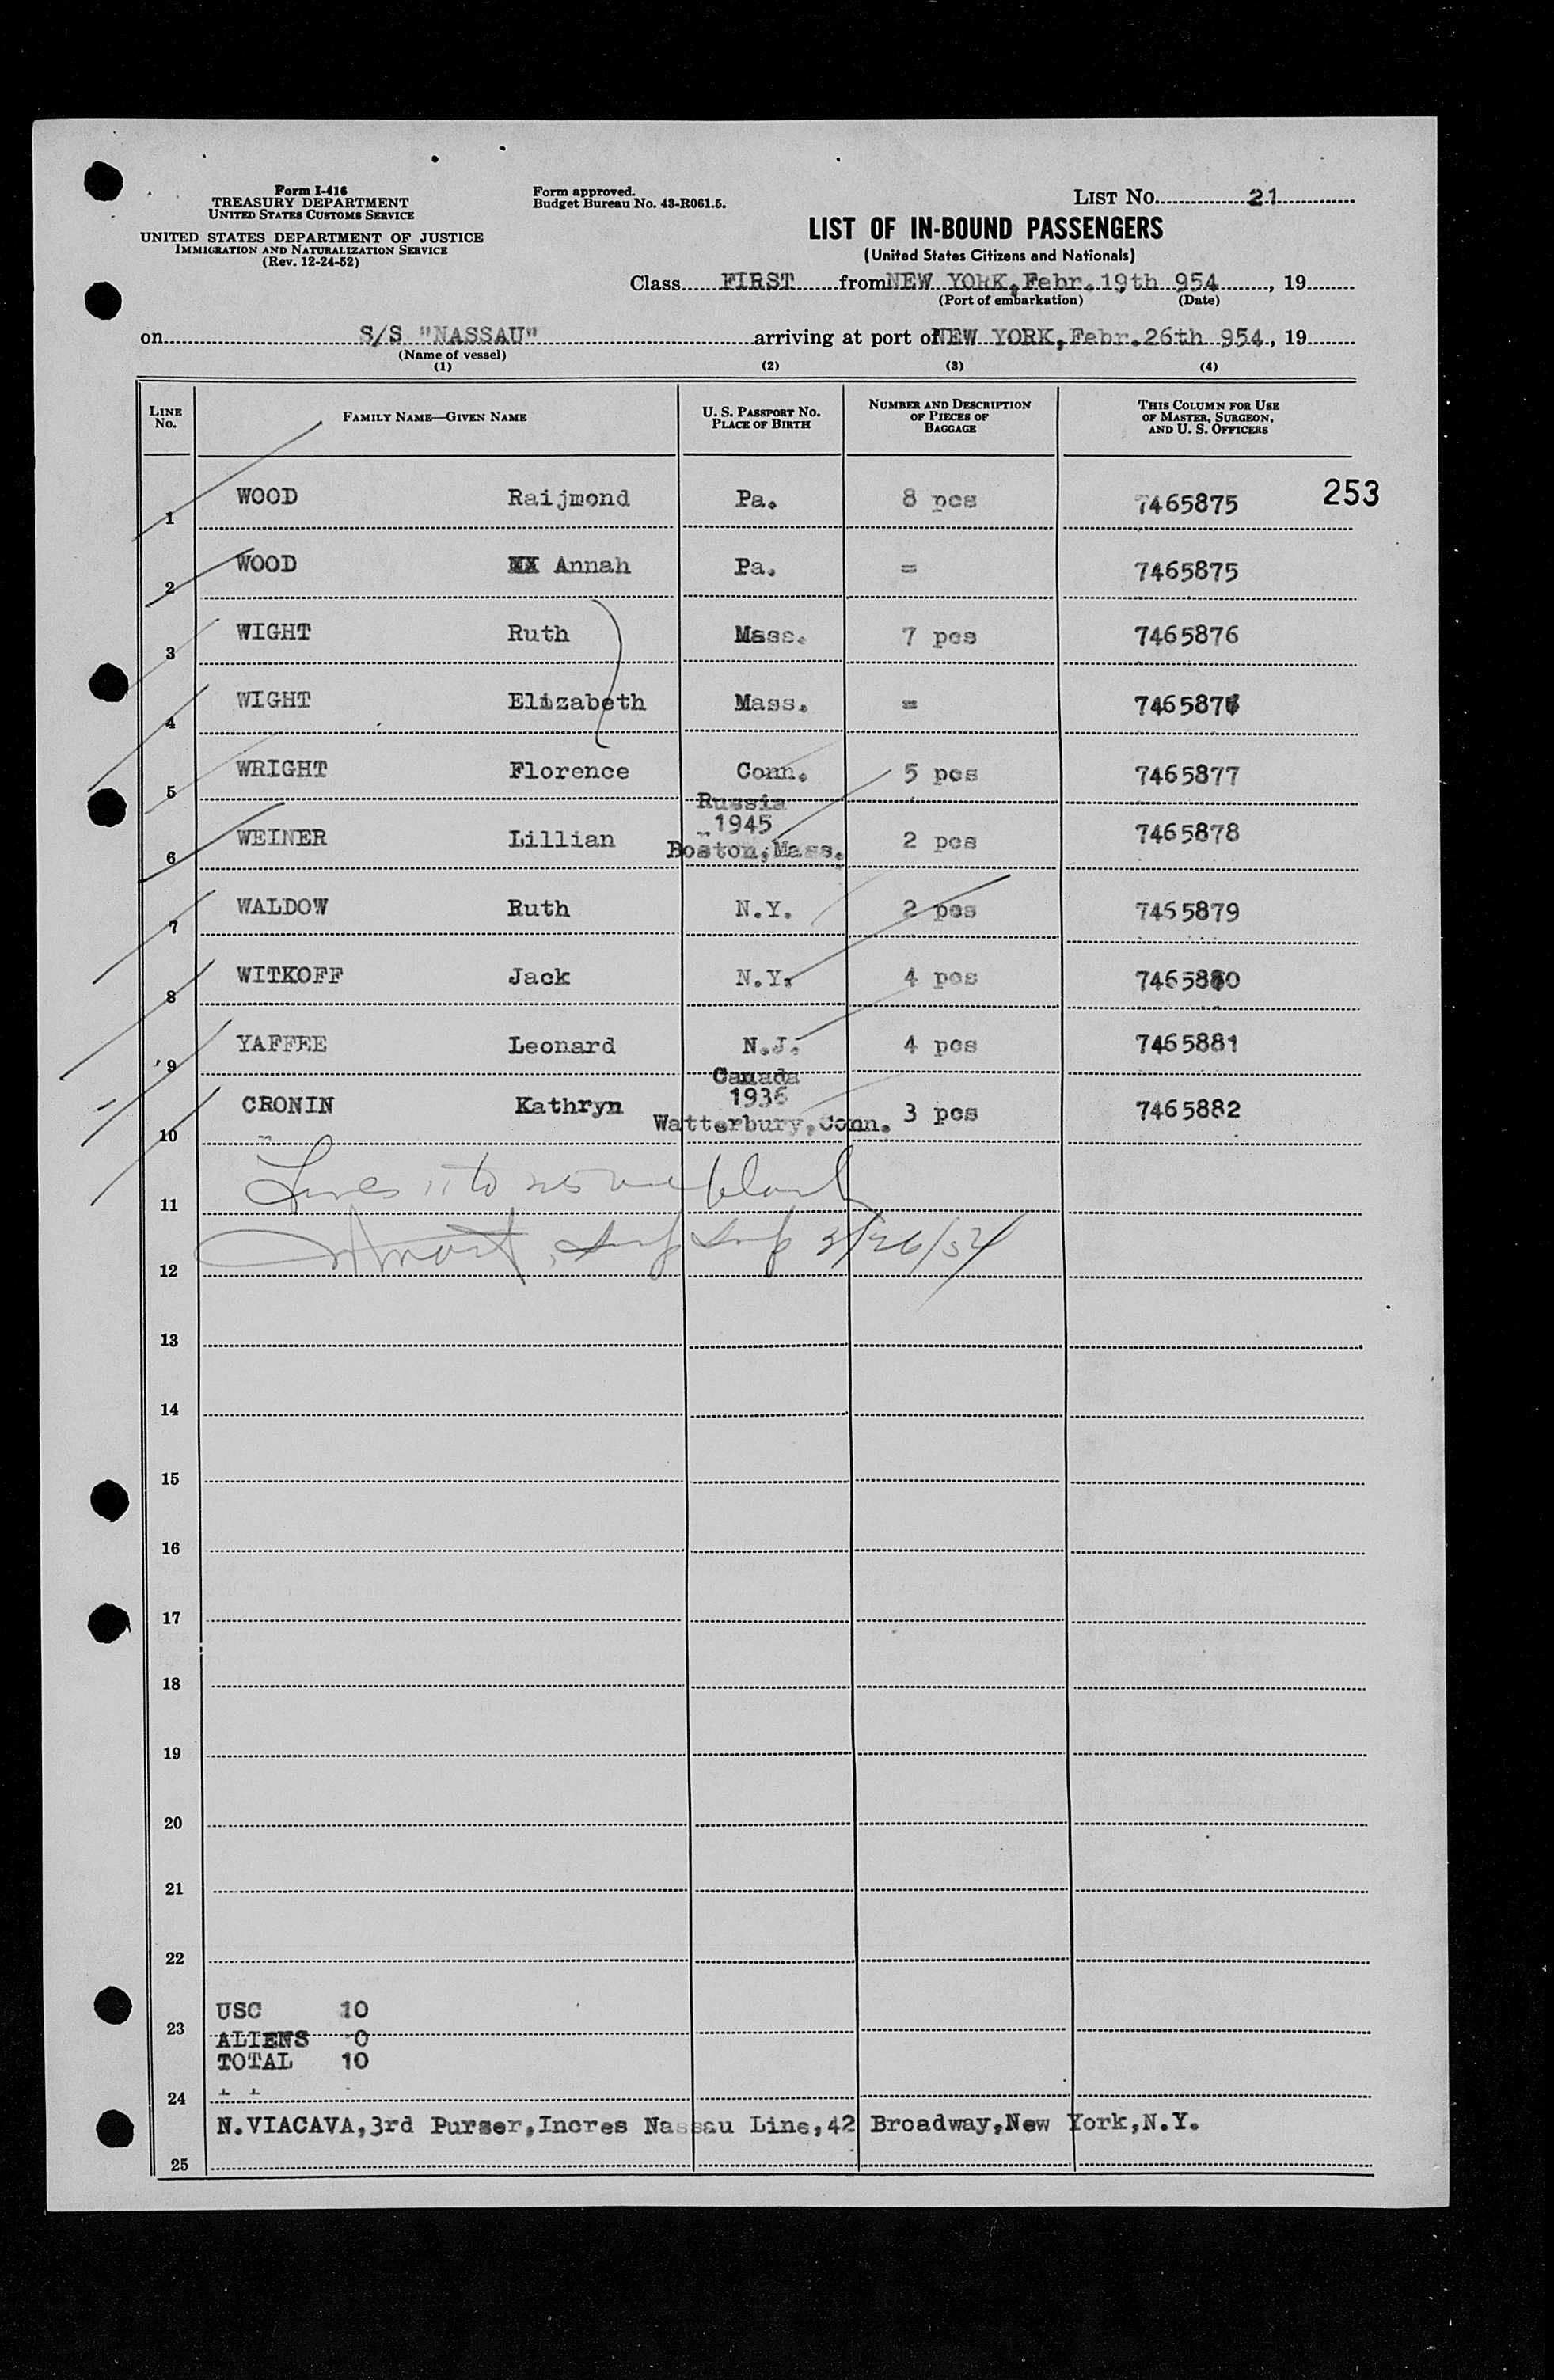 Form I-416
TREASURY DEPARTMENT
UNITED STATES CUSTOMS SERVICE
UNITED STATES DEPARTMENT OF JUSTICE
IMMIGRATION AND NATURALIZATION SERVICE
(Rev. 12-24-52)
Form approved.
Budget Bureau No. 43-R061.5.
LIST No. 21
LIST OF IN-BOUND PASSENGERS
(United States Citizens and Nationals)
Class FIRST from NEW YORK, Febr. 19th 954, 19
(Port of embarkation) (Date)
on S/S "NASSAU" arriving at port of NEW YORK, Febr. 26th 954, 19
(Name of vessel)
(1) (2) (3) (4)
LINE No. FAMILY NAME—GIVEN NAME U. S. PASSPORT No. PLACE OF BIRTH NUMBER AND DESCRIPTION OF PIECES OF BAGGAGE THIS COLUMN FOR USE OF MASTER, SURGEON, AND U. S. OFFICERS
253
1 WOOD Raijmond Pa. 8 pcs 7465875
2 WOOD XX Annah Pa. = 7465875
3 WIGHT Ruth Mass. 7 pcs 7465876
4 WIGHT Elizabeth Mass. = 7465876
5 WRIGHT Florence Conn. 5 pcs 7465877
6 WEINER Lillian Russia 1945 Boston, Mass. 2 pcs 7465878
7 WALDOW Ruth N.Y. 2 pcs 7465879
8 WITKOFF Jack N.Y. 4 pcs 7465880
9 YAFFEE Leonard N.J. 4 pcs 7465881
10 CRONIN Kathryn Canada 1936 Watterbury, Conn. 3 pcs 7465882
11 Lines 11 to 25 blank
12 2/26/54
13
14
15
16
17
18
19
20
21
22
USC 10
23
ALIENS 0
TOTAL 10
24
N.VIACAVA,3rd Purser,Incres Nassau Line,42 Broadway,New York,N.Y.
25